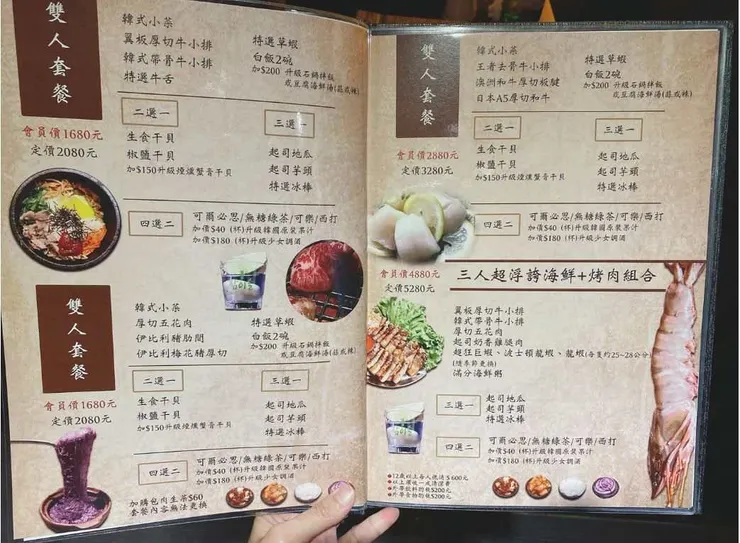 雙人套餐
會員價1680元
定價2080元
韓式小菜
翼板厚切牛小排
韓式帶骨牛小排
特選牛舌
特選草蝦
白飯2碗
加$200 升級石鍋拌飯
或豆腐海鮮湯(菇或辣)
二選一
生食干貝
椒鹽干貝
加$150升級煙燻蟹膏干貝
三選一
起司地瓜
起司芋頭
特選冰棒
四選二
可爾必思/無糖綠茶/可樂/西打
加價$40 (杯)升級韓國原裝果汁
加價$180 (杯)升級少女調酒
雙人套餐
會員價1680元
定價2080元
韓式小菜
厚切五花肉
伊比利豬肋間
伊比利梅花豬厚切
特選草蝦
白飯2碗
加$200 升級石鍋拌飯
或豆腐海鮮湯(菇或辣)
二選一
生食干貝
椒鹽干貝
加$150升級煙燻蟹膏干貝
三選一
起司地瓜
起司芋頭
特選冰棒
四選二
可爾必思/無糖綠茶/可樂/西打
加價$40 (杯)升級韓國原裝果汁
加價$180 (杯)升級少女調酒
加購包肉生菜$60
套餐內容無法更換
雙人套餐
會員價2880元
定價3280元
韓式小菜
王者去骨牛小排
澳洲和牛厚切板腱
日本A5厚切和牛
特選草蝦
白飯2碗
加$200 升級石鍋拌飯
或豆腐海鮮湯(菇或辣)
二選一
生食干貝
椒鹽干貝
加$150升級煙燻蟹膏干貝
三選一
起司地瓜
起司芋頭
特選冰棒
四選二
可爾必思/無糖綠茶/可樂/西打
加價$40 (杯)升級韓國原裝果汁
加價$180 (杯)升級少女調酒
會員價4880元
定價5280元
三人超浮誇海鮮+烤肉組合
翼板厚切牛小排
韓式帶骨牛小排
厚切五花肉
起司奶香雞腿肉
超狂巨蝦、波士頓龍蝦、龍蝦(每隻約25~28公分)
(隨季節更換)
滿分海鮮粥
三選一
起司地瓜
起司芋頭
特選冰棒
四選二
可爾必思/無糖綠茶/可樂/西打
加價$40 (杯)升級韓國原裝果汁
加價$180 (杯)升級少女調酒
●12歲以上每人低消$600元
●以上需收一成清潔費
●外帶飲料酌收$200元
●外帶食物酌收$200元